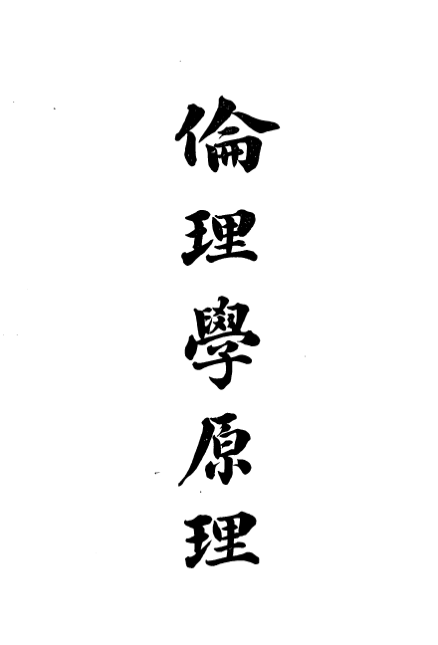 倫理學原理